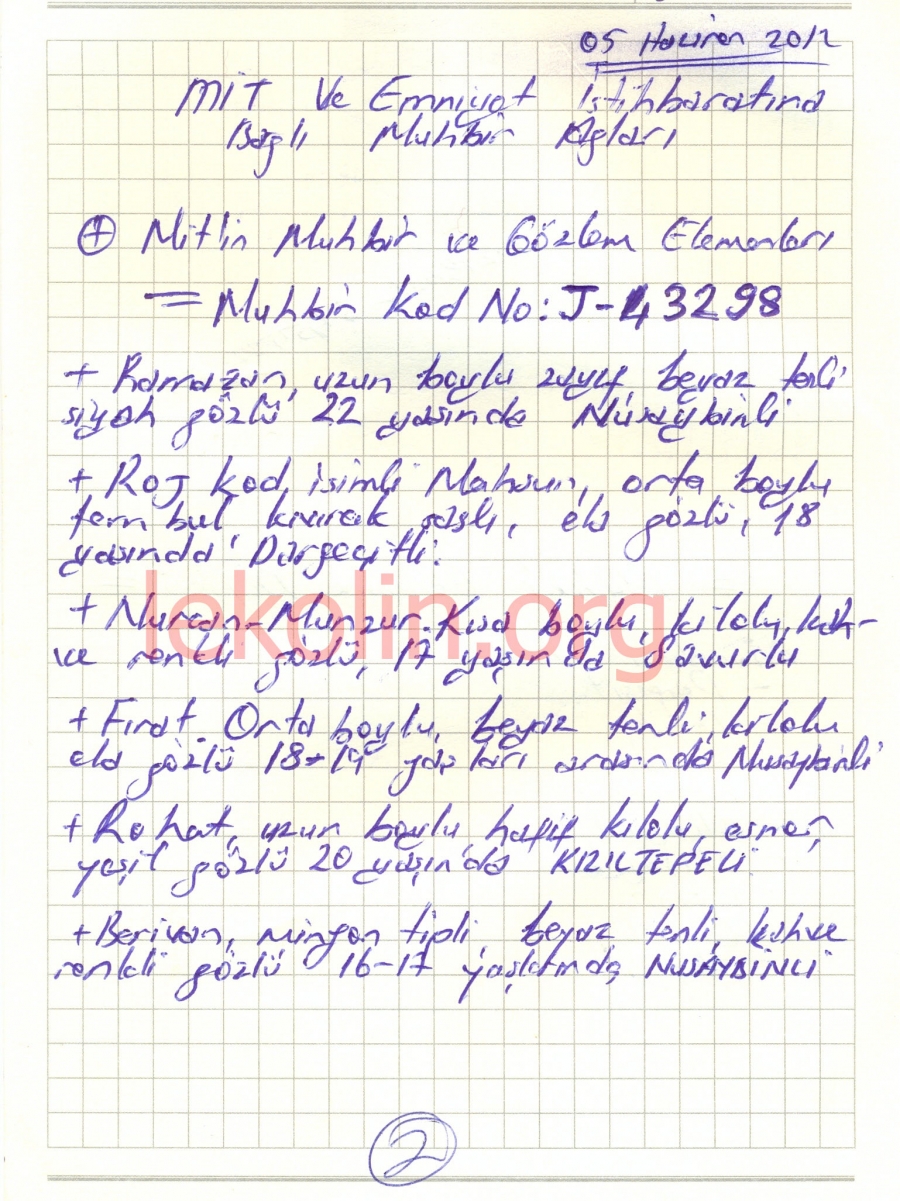 05 Haziran 2012
MİT ve Emniyet İstihbaratına
Bağlı Muhbir Ağları
⊕ Mitin Muhbir ve Gözlem Elemanları
= Muhbir Kod No: J-43298
+ Ramazan, uzun boylu zayıf, beyaz tenli
siyah gözlü 22 yasında Nusaybinli
+ Roj kod isimli Mahsun, orta boylu
kıvırcık saçlı, ela gözlü, 18
yasında, Dargeçitli.
+ Nurcan-Munzur. Kısa boylu, kilolu, kah-
ve renkli gözlü, 17 yaşında Savurlu
+ Fırat. Orta boylu, beyaz tenli, kilolu
ela gözlü 18-19 yaşları arasında Nusaybinli
+ Rohat, uzun boylu, hafif kilolu, esmer,
yeşil gözlü 20 yaşında KIZILTEPELİ
+ Berivan, minyon tipli, beyaz tenli, kahve
renkli gözlü 16-17 yaşlarında NUSAYBİNLİ
2
lekolin.org